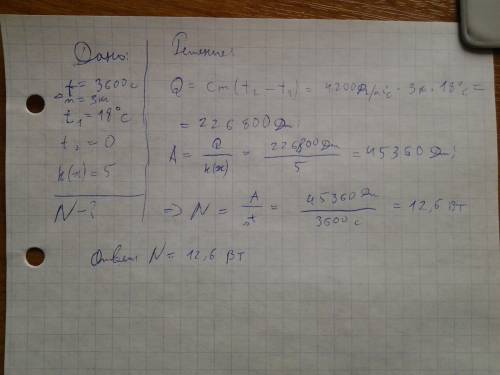 Дано:
t = 3600 с
m = 3 кг
t₁ = 18°С
t₂ = 0
k(x) = 5
N - ?
Решение:
Q = cm(t₂ - t₁) = 4200 Дж/кг°с · 3 кг · 18°с =
= 226800 Дж;
A = Q/k(x) = 226800 Дж/5 = 45360 Дж;
=> N = A/t = 45360 Дж/3600 с = 12,6 Вт
Ответ: N = 12,6 Вт